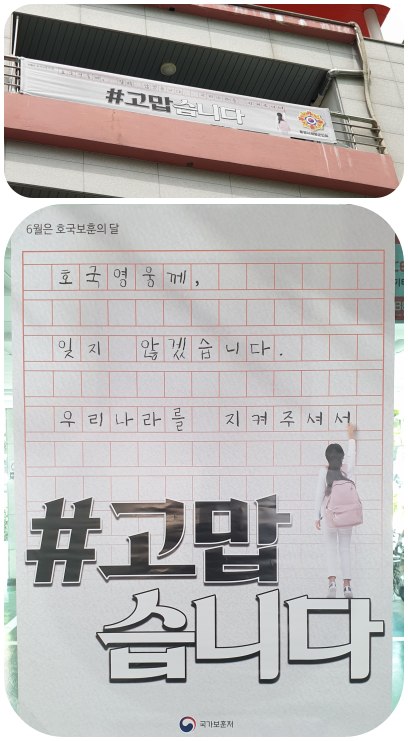 #고맙습니다
6월은 호국보훈의 달
호국영웅께,
잊지 않겠습니다.
우리나라를 지켜주셔서
#고맙
습니다
국가보훈처